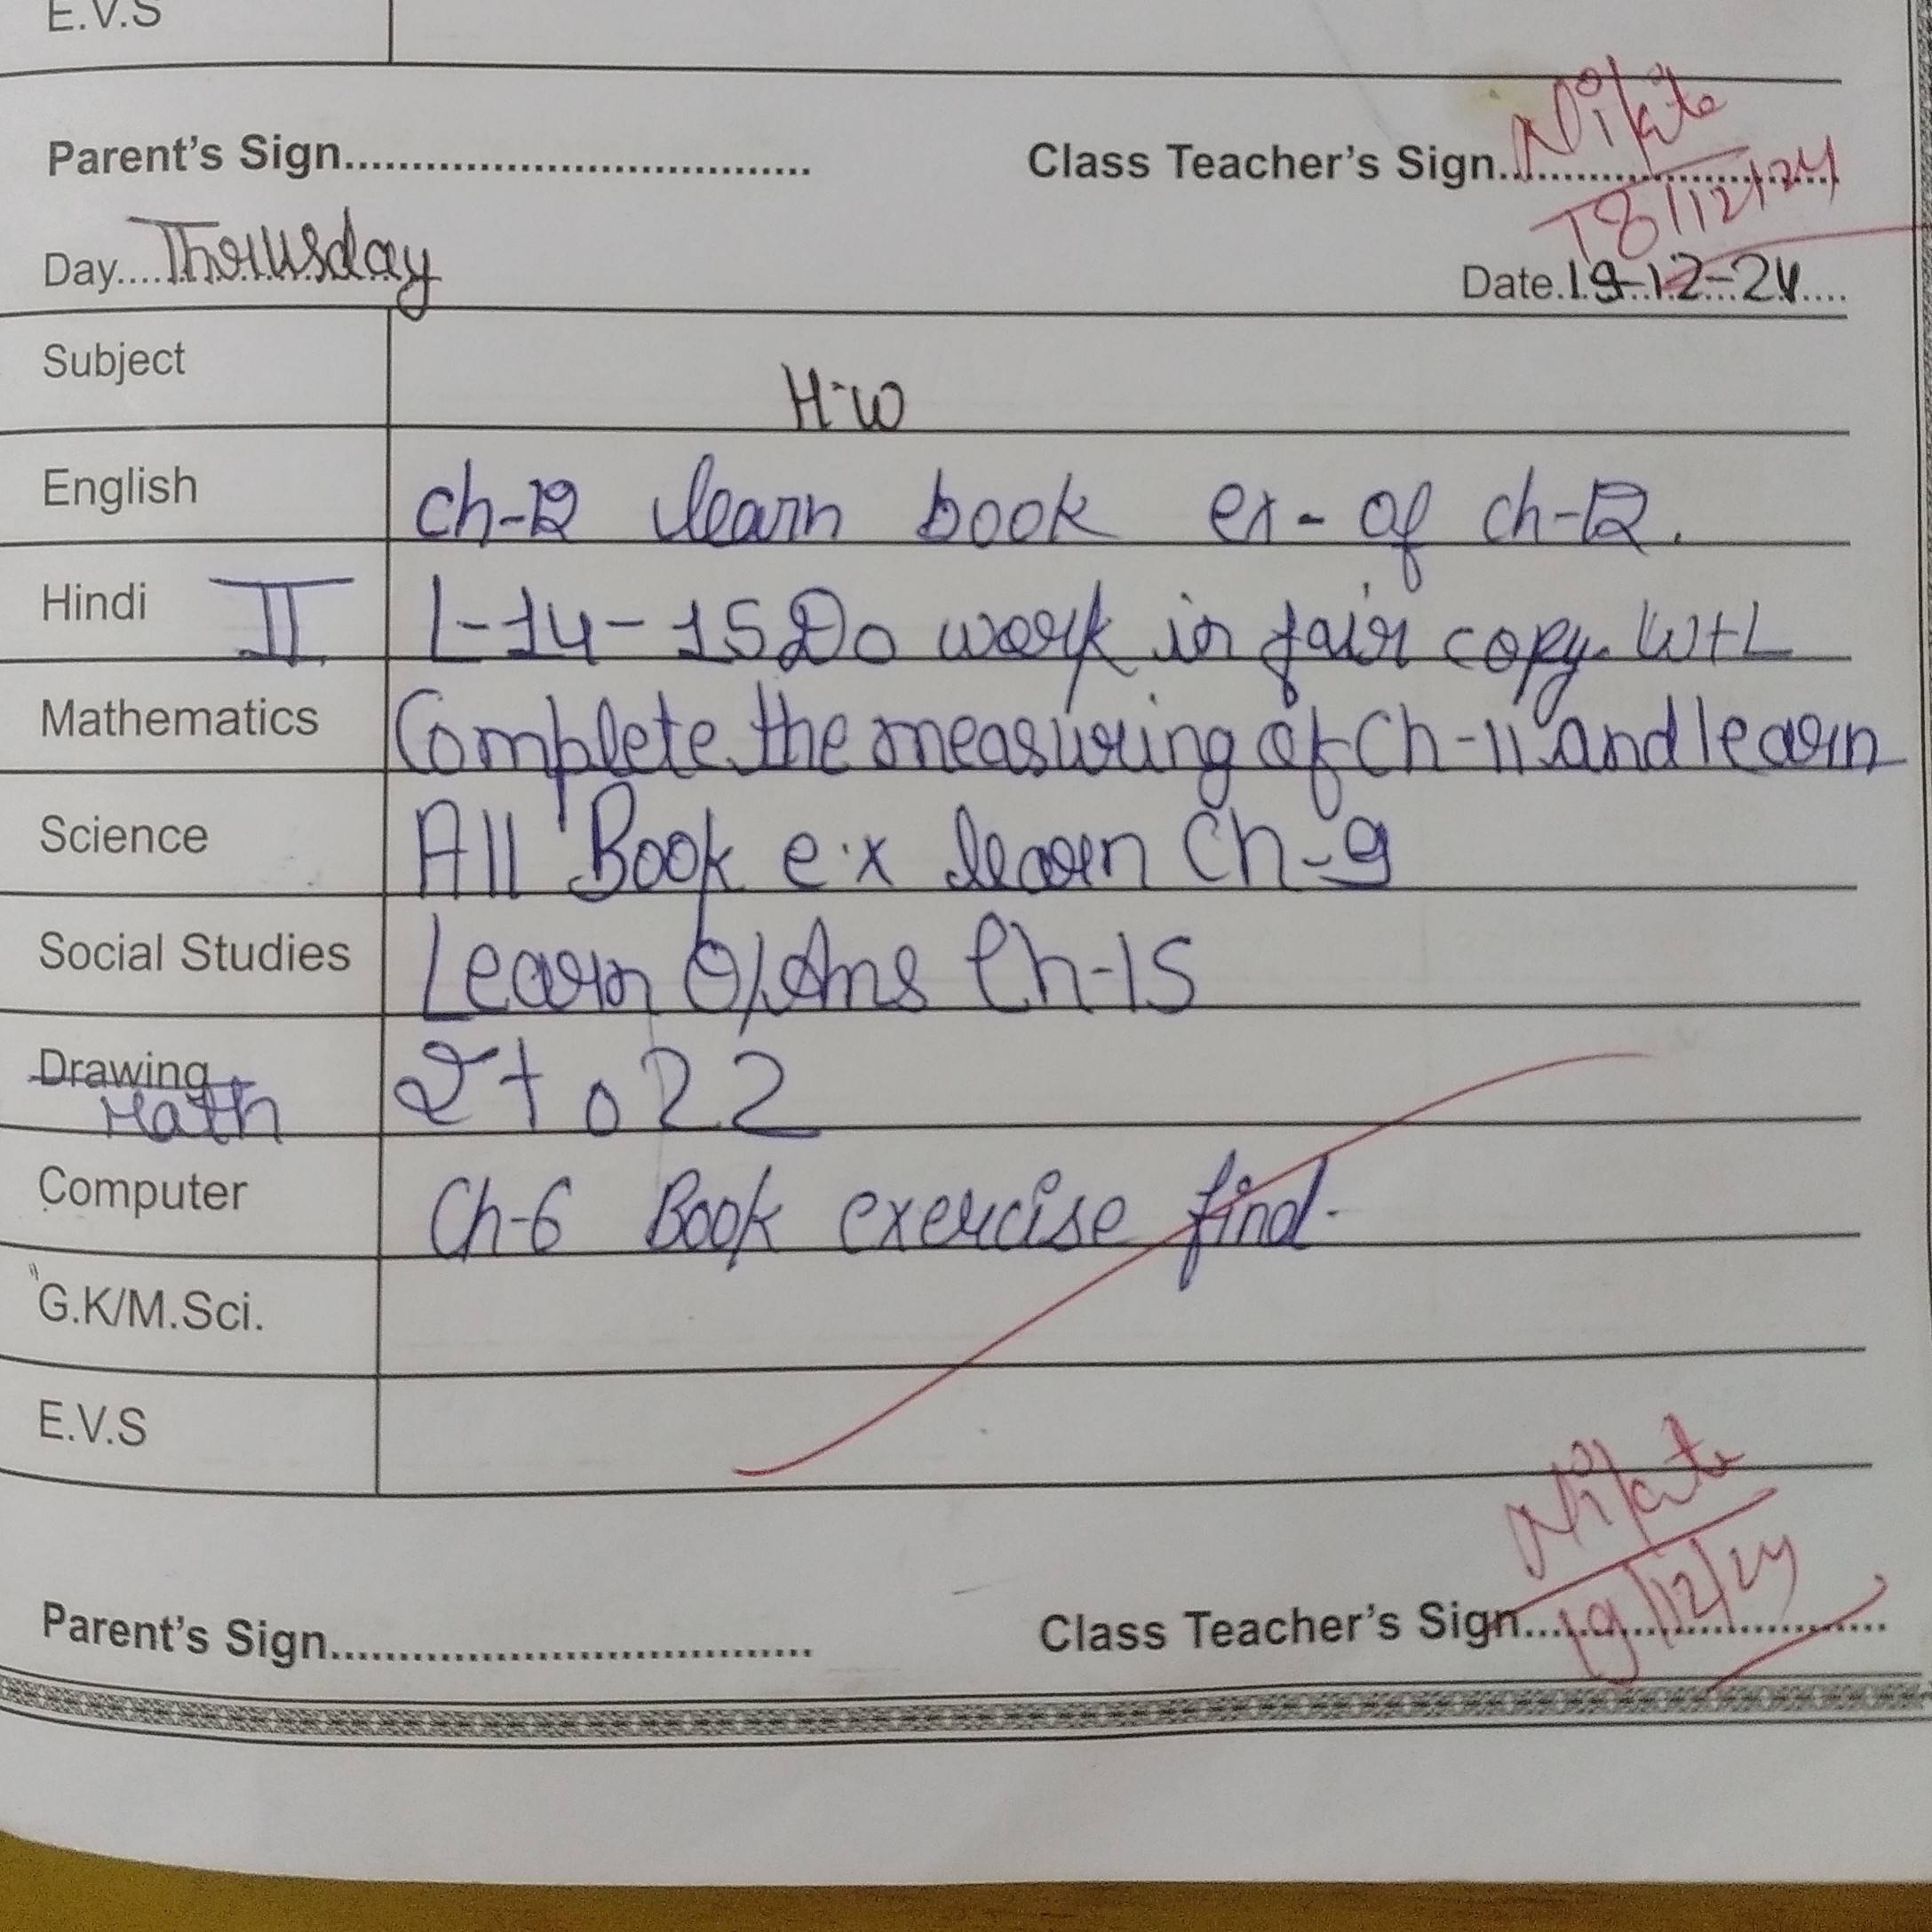 E.V.S
Parent's Sign.................................. Class Teacher's Sign.......................... Nikita
18/12/24
Day.... Thrusday Date. 19-12-24
Subject H.W
English ch-12 learn book ex- of ch-12.
Hindi II L-14-15 Do work in fair copy. W+L
Mathematics Complete the measuring of Ch-11 and learn
Science All Book e.x learn Ch-9
Social Studies Learn Q/Ans Ch-15
Drawing Math 2 to 22
Computer Ch-6 Book exercise find.
G.K/M.Sci.
E.V.S
Nikita
Parent's Sign.................................. Class Teacher's Sign.......................... 19/12/24